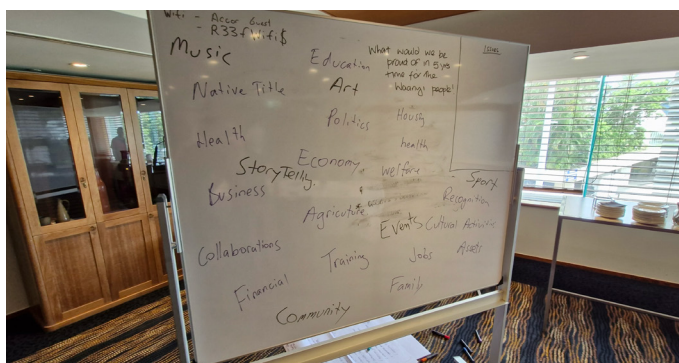 Wifi - Accor Guest
- R33fWifi$
Music
Education
What would we be
proud of in 5 yrs
time for the
Waanyi people?
Native Title
Art
Politics
Health
health
Economy
Story Telling
welfare
Business
Sport
Recognition
Agriculture
Events
Cultural Activities
Collaborations
Training
Jobs
Assets
Financial
Family
Community